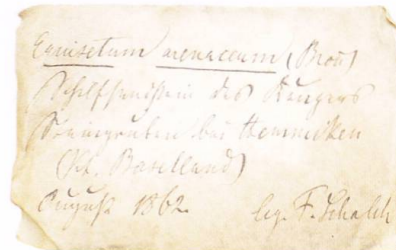 Equisetum arenaceum (Bron)
Schilfsandstein des Keupers
Steingruben bei Hemmiken
(Kt. Baselland)
August 1862. leg. F. Schalch